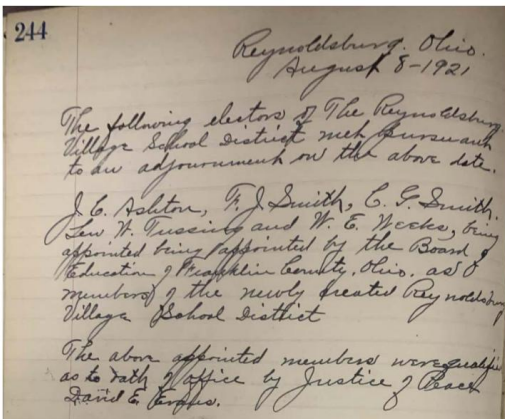 244
Reynoldsburg. Ohio.
August 8-1921
The following electors of The Reynoldsburg
Village School District met pursuant
to an adjournment on the above date.
J. C. Ashton, F. J. Smith, C. G. Smith,
Lew W. Tussing and W. E. Weeks, being
appointed being appointed by the Board of
Education of Franklin County, Ohio. as
members of the newly created Reynoldsburg
Village School District
The above appointed members were qualified
as to oath of office by Justice of Peace
David E.